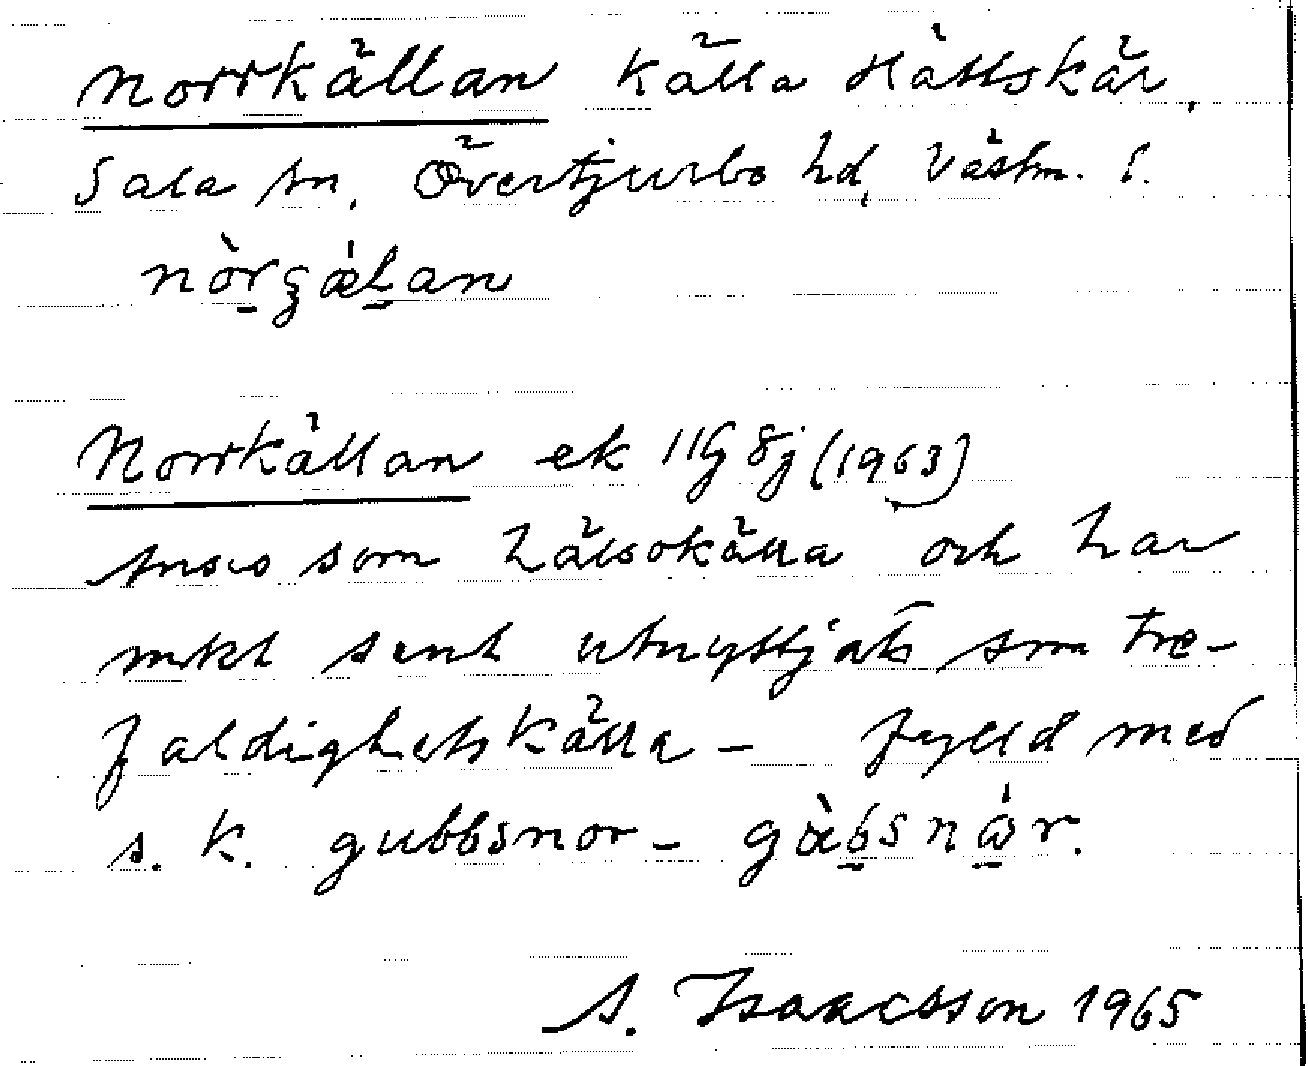 Norrkällan källa Hättskär,
Sala sn, Övertjurbo hd, Västm. l.
nòrgǽlan
Norrkällan ek 11G 8j (1963)
Anses som hälsokälla och har
mkt sent utnyttjats som tre-
faldighetskälla - fylld med
s. k. gubbsnor - gàbsnár.
A. Isaacsson 1965